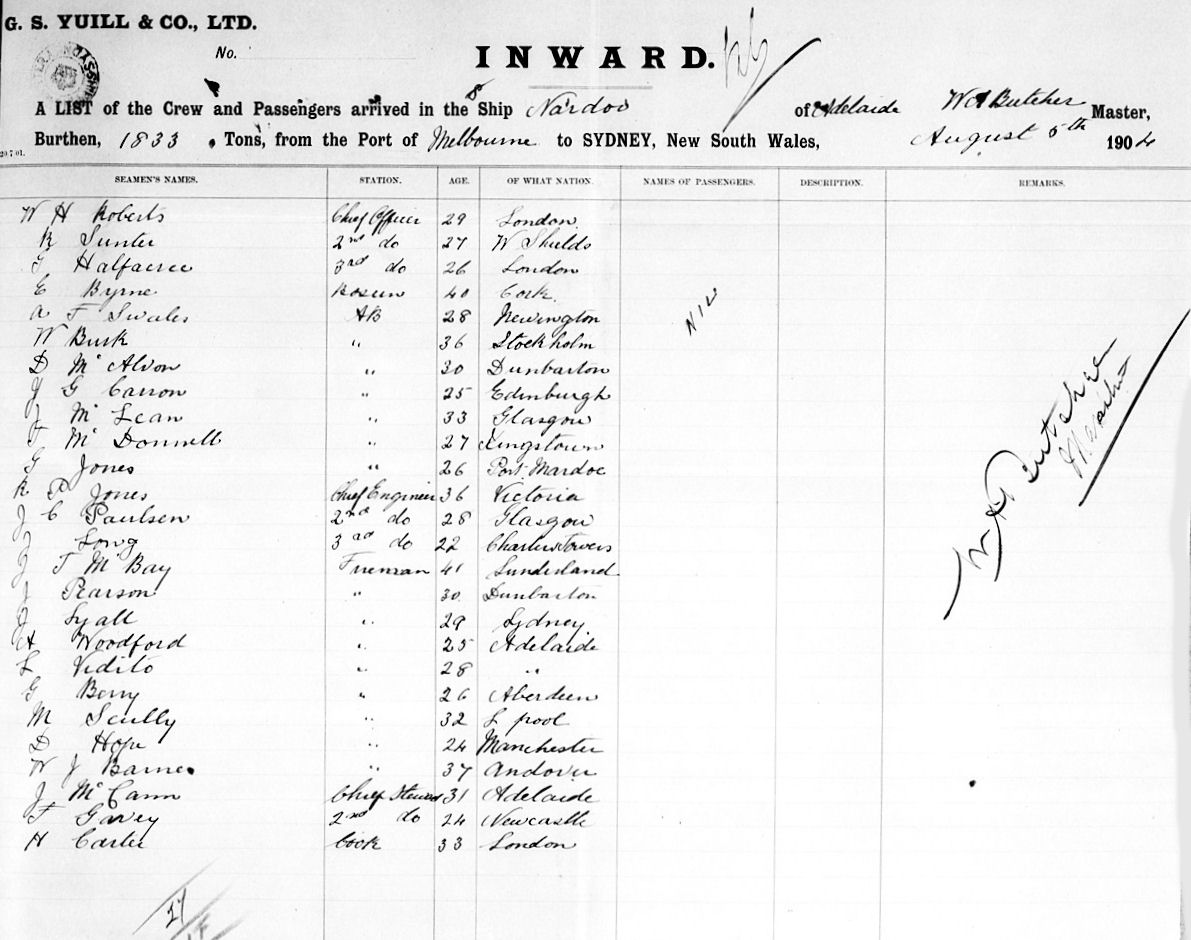 G. S. YUILL & CO., LTD.
No.
INWARD.
A LIST of the Crew and Passengers arrived in the Ship Nardoo of Adelaide W A Butcher Master,
Burthen, 1833 Tons, from the Port of Melbourne to SYDNEY, New South Wales, August 5th 1904
20.7.01.
SEAMEN'S NAMES. STATION. AGE. OF WHAT NATION. NAMES OF PASSENGERS. DESCRIPTION. REMARKS.
W H Roberts Chief Officer 29 London
R Sunter 2nd do 27 W Shields
Halfacree 3rd do 26 London
E Byrne Bosun 40 Cork
A F Swales AB 28 Newington
NIL
W Busk " 36 Stockholm
D Mc Alvon " 30 Dunbarton
J G Carron " 25 Edinburgh
J Mc Lean " 33 Glasgow
F Mc Donnell " 27 Kingstown
G Jones " 26 Port Mardoc
R P Jones Chief Engineer 36 Victoria
J C Paulsen 2nd do 28 Glasgow
J Long 3rd do 22 Charters Towers
J T Mc Bay Fireman 41 Sunderland
J Pearson " 30 Dunbarton
J Lyall " 29 Sydney
A Woodford " 25 Adelaide
L Vidito " 28 "
G Berry " 26 Aberdeen
M Scully " 32 L pool
D Hope " 24 Manchester
W J Barnes " 37 Andover
J Mc Cann Chief Steward 31 Adelaide
F Gavey 2nd do 24 Newcastle
H Carter Cook 33 London
W A Butcher
Master
27